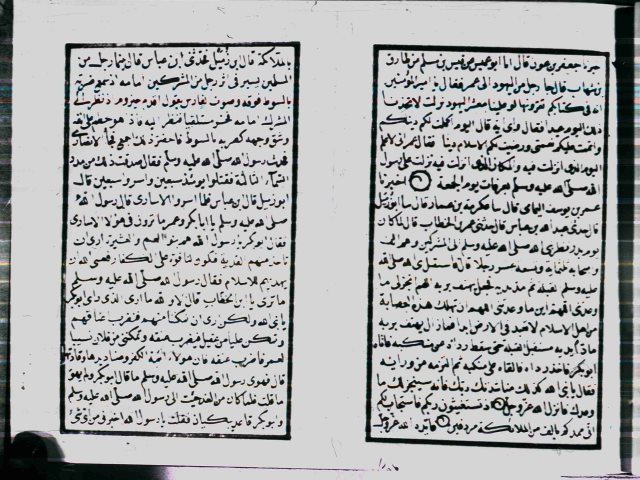 خبرنا جعفر بن عون قال انا ابو عميس عن قيس بن مسلم عن طارق
بن شهاب قال جا رجل من اليهود الى عمر فقال يا امير المؤمنين
اية في كتابكم تقرونها لو علينا معشر اليهود نزلت لاتخذنا
ذلك اليوم عيدا فقال واى اية قال اليوم اكملت لكم دينكم
واتممت عليكم نعمتي ورضيت لكم الاسلام دينا فقال عمر اني لاعلم
اليوم الذي انزلت فيه والمكان الذي انزلت فيه نزلت على رسول
الله صلى الله عليه وسلم بعرفات يوم الجمعة اخبرنا
عمر بن يونس اليمامي قال نا عكرمة بن عمار قال نا ابو زميل
قال حدثني عبد الله بن عباس قال حدثني عمر بن الخطاب قال لما كان
يوم بدر نظر نبي الله صلى الله عليه وسلم الى المشركين وهم الف
واصحابه ثلثمائة وبضعة عشر رجلا قال فاستقبل نبي الله صلى الله
عليه وسلم القبلة ثم مد يديه فجعل يهتف بربه اللهم انجز لي ما
وعدتني اللهم ما وعدتني اللهم ان تهلك هذه العصابة
من اهل الاسلام لا تعبد في الارض ابدا فما زال يهتف بربه
مادا يديه مستقبل القبلة حتى سقط رداءه من منكبه فاتاه
ابو بكر فاخذ رداءه فالقاه على منكبه ثم التزمه من ورائه
فقال يا نبي الله كفاك مناشدتك ربك فانه سينجز لك ما
وعدك فانزل الله عز وجل اذ تستغيثون ربكم فاستجاب لكم
اني ممدكم بالف من الملائكة مردفين فامده الله عز وجل
بالملائكة قال ابو زميل فحدثني ابن عباس قال بينما رجل من
المسلمين يسير في اثر رجل من المشركين امامه اذ سمع ضربة
بالسوط فوقه وصوت الفارس يقول اقدم حيزوم اذ نظر الى
المشرك امامه فخر مستلقيا فنظر اليه فاذا هو حطم انفه
وشق وجهه كضربة بالسوط فاخضر ذلك اجمع فجا الانصاري
فحدث رسول الله صلى الله عليه وسلم فقال صدقت ذلك من مدد
السماء الثالثة فقتلوا يومئذ سبعين واسروا سبعين قال
ابو زميل قال ابن عباس فلما اسروا الاسارى قال رسول الله
صلى الله عليه وسلم يا ابا بكر وعمر ما ترون في هولا الاسارى
فقال ابو بكر يا رسول الله هم بنو العم والعشيرة ارى ان
تاخذ منهم الفدية فتكون لنا قوة على الكفار فعسى الله ان
يهديهم للاسلام فقال رسول الله صلى الله عليه وسلم
ما ترى يا ابن الخطاب قال لا والله ما ارى الذي راى ابو بكر
يا نبي الله ولكن ارى ان تمكنا منهم فنضرب اعناقهم
وتمكن عليا من عقيل فيضرب عنقه وتمكنني من فلان نسيبا
لعمر فاضرب عنقه فان هولا ائمة الكفر وصناديدها وقادتها
قال فهوى رسول الله صلى الله عليه وسلم ما قال ابو بكر ولم يهو
ما قلت فلما كان من الغد جئت الى رسول الله صلى الله عليه وسلم
وابو بكر قاعد يبكيان فقلت يا رسول الله اخبرني من اى شئ